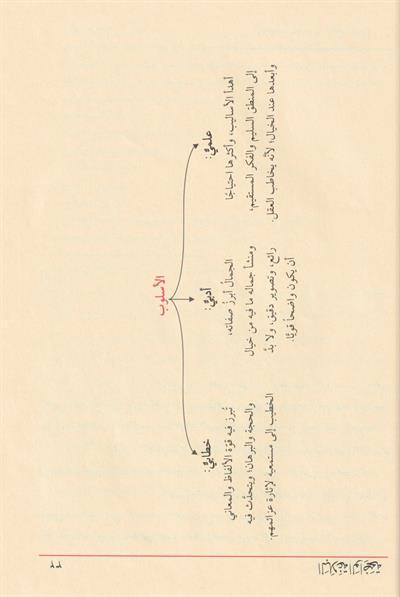 الأسلوب
علميٌّ:
أهدأ الأساليب، وأكثرها احتياجًا
إلى المنطق السليم والفكر المستقيم،
وأبعدها عند الخيال؛ لأنه يخاطب العقل.
أدبيٌّ:
الجمالُ أبرزُ صفاته،
ومنشأ جماله ما فيه من خيال
رائع، وتصوير دقيق، ولا بدّ
أن يكون واضحاً قويًّا.
خطابيٌّ:
تُبرز فيه قوّة الألفاظ والمعاني
والحجة والبرهان؛ ويتحدّث فيه
الخطيب إلى مستمعيه لإثارة عزائمهم.
البلاغة الواضحة
٣٢